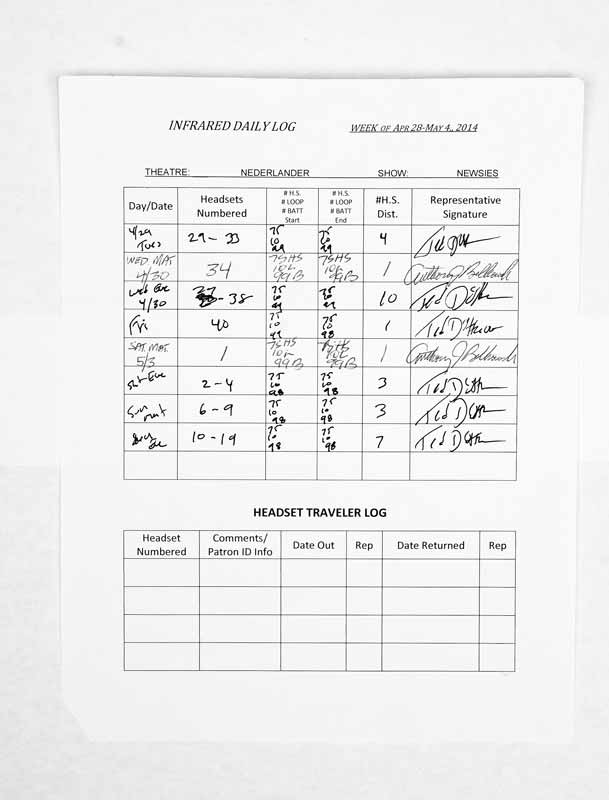 INFRARED DAILY LOG WEEK OF APR 28-MAY 4, 2014
THEATRE: NEDERLANDER SHOW: NEWSIES
Day/Date Headsets Numbered # H.S. # LOOP # BATT Start # H.S. # LOOP # BATT End #H.S. Dist. Representative Signature
4/29 Tues 29 - 33 75 10 99 75 10 99 4 Ted
WED. MAT. 4/30 34 75HS 10L 99B 75HS 10L 99B 1 Anthony J
Wed Eve 4/30 37 - 38 75 10 99 75 10 99 10 Ted
Fri 40 75 10 99 75 10 98 1 Ted
SAT. MAT. 5/3 1 75HS 10L 99B 75HS 10L 99B 1 Anthony J
Sat Eve 2 - 4 75 10 98 75 10 98 3 Ted
Sun mat 6 - 9 75 10 98 75 10 98 3 Ted
Sun Eve 10 - 19 75 10 98 75 10 98 7 Ted
HEADSET TRAVELER LOG
Headset Numbered Comments/ Patron ID Info Date Out Rep Date Returned Rep